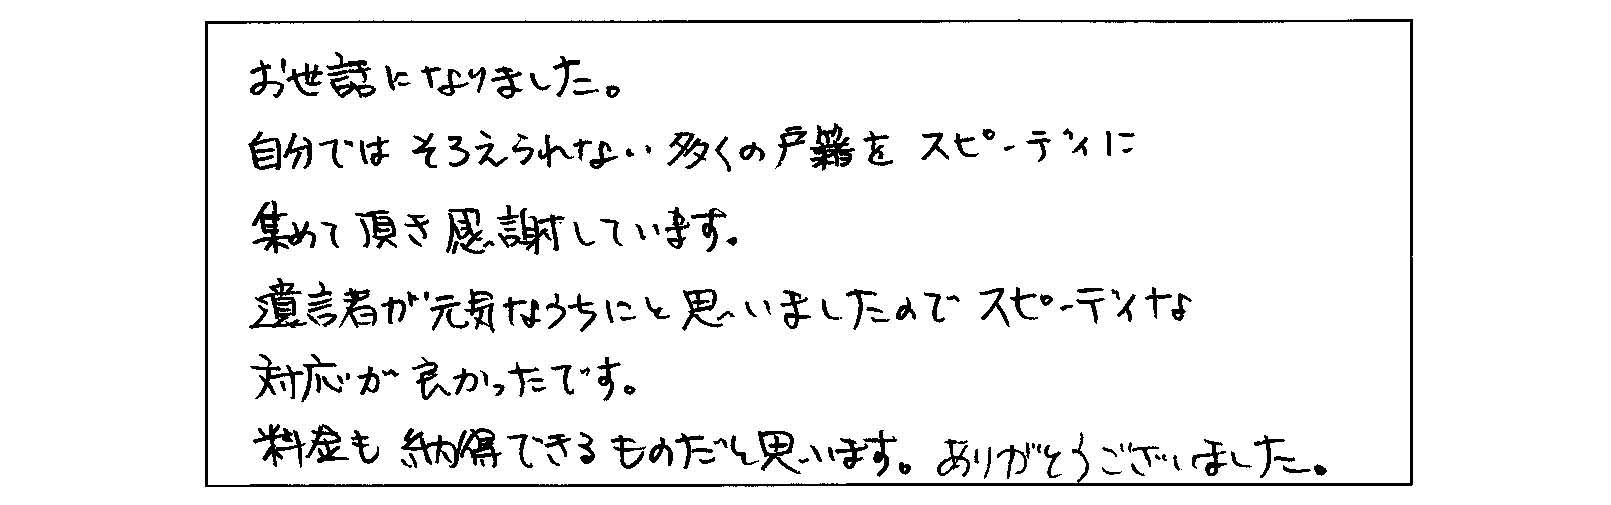 お世話になりました。
自分では そろえられない 多くの戸籍を スピーディに
集めて 頂き 感謝しています。
遺言者が 元気なうちにと 思いましたので スピーディな
対応が 良かったです。
料金も 納得できる ものだと思います。ありがとうございました。